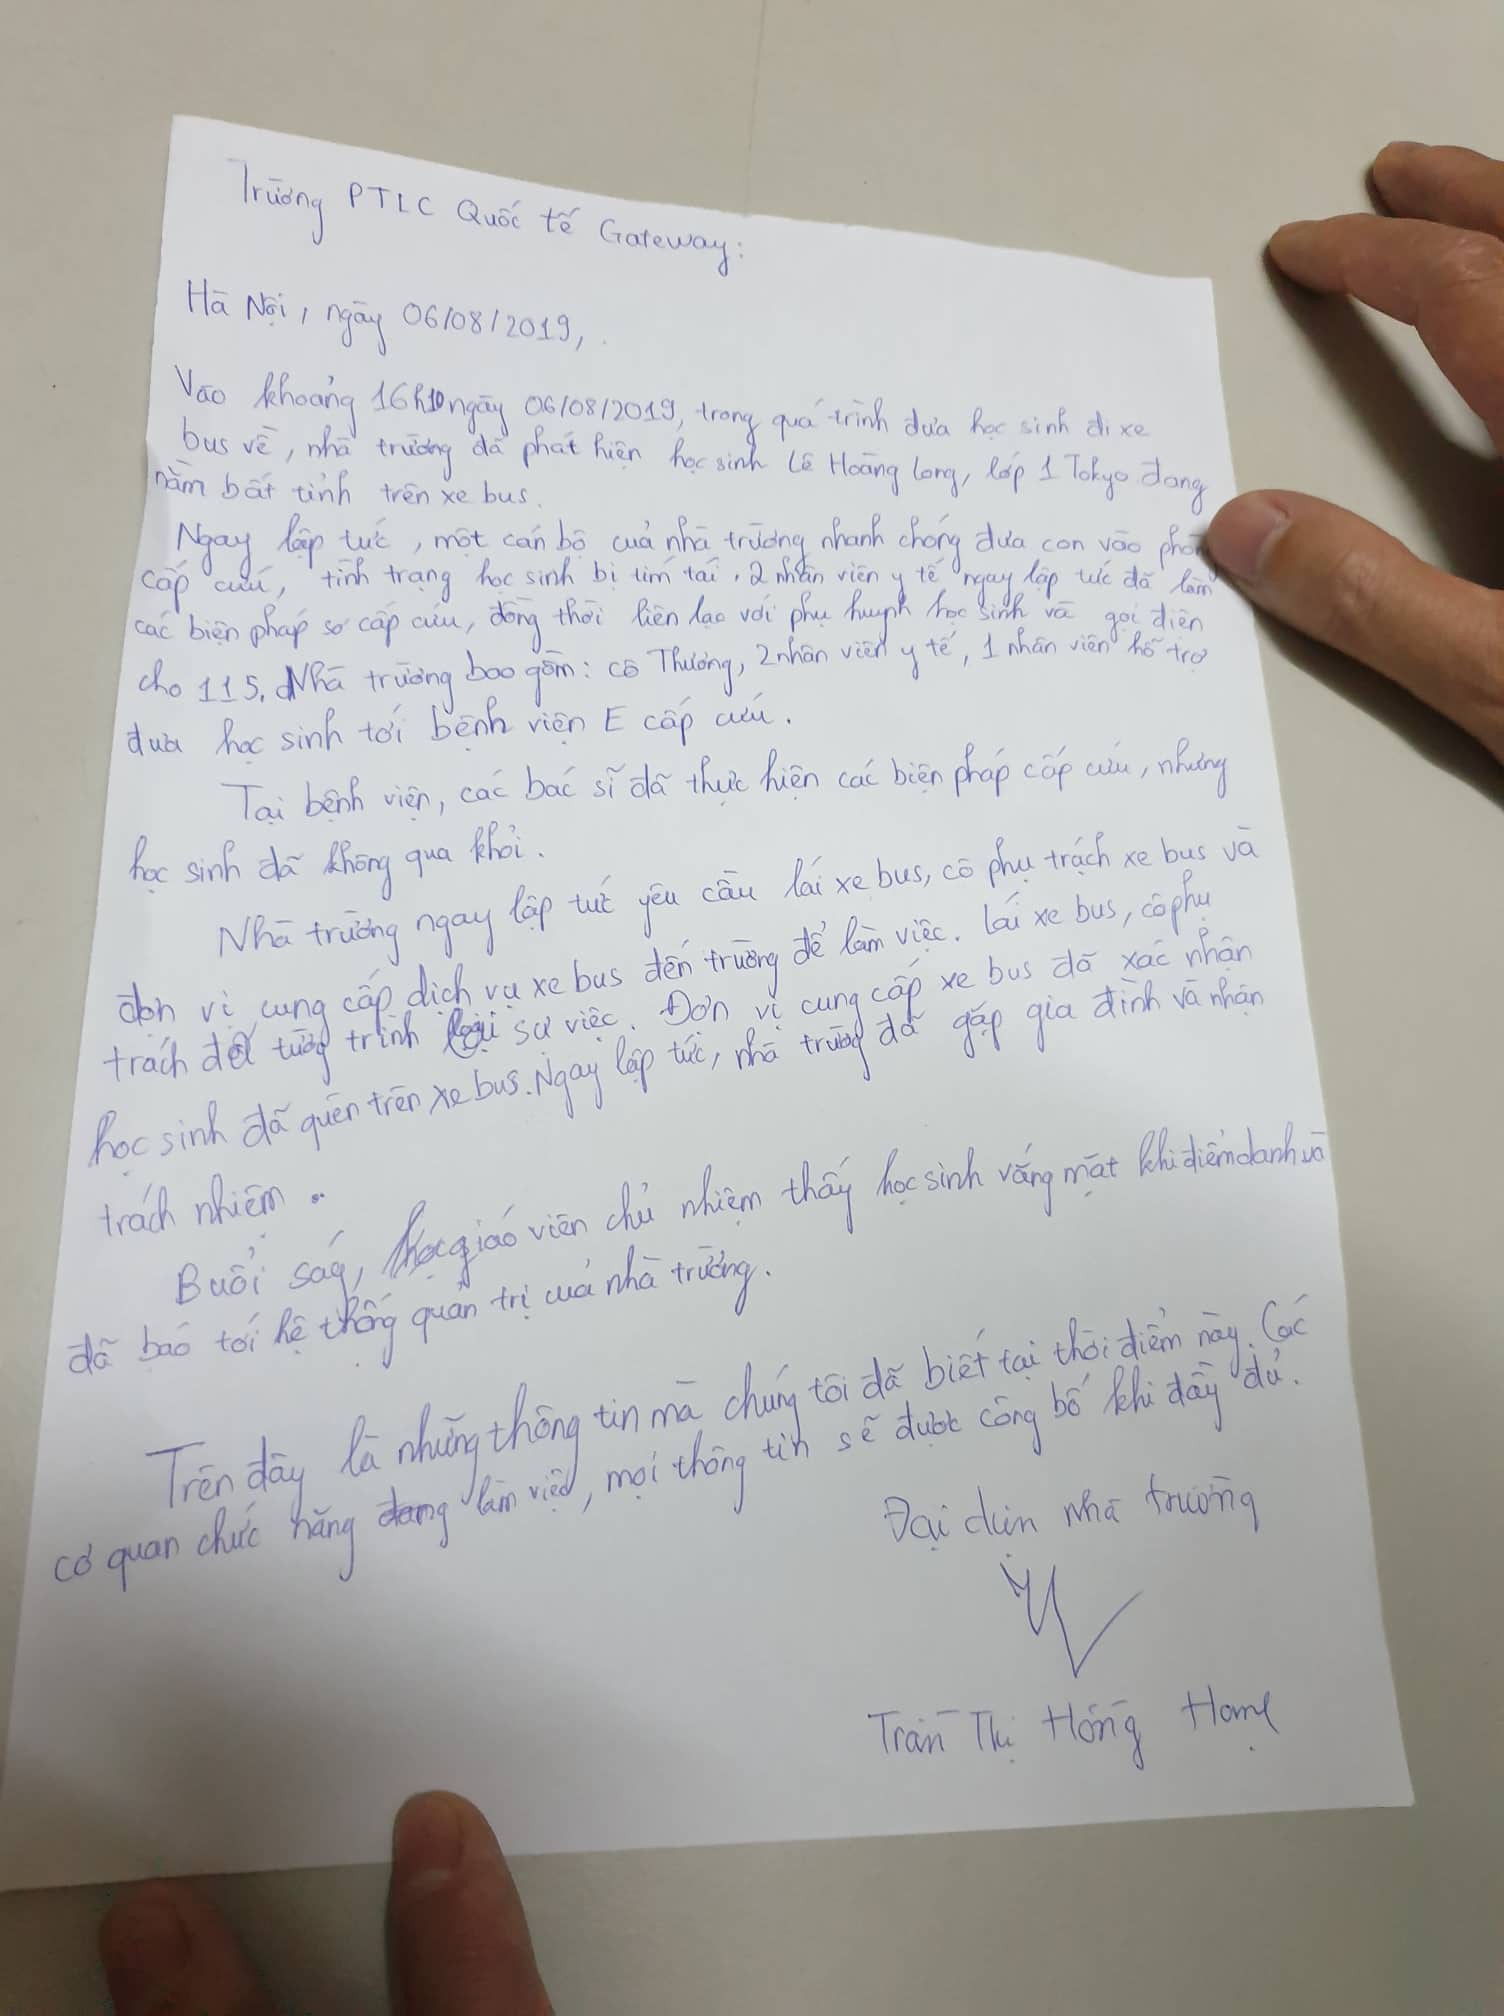 Trường PTLC Quốc tế Gateway:
Hà Nội, ngày 06/08/2019,
Vào khoảng 16h10 ngày 06/08/2019, trong quá trình đưa học sinh đi xe
bus về, nhà trường đã phát hiện học sinh Lê Hoàng Long, lớp 1 Tokyo đang
nằm bất tỉnh trên xe bus.
Ngay lập tức, một cán bộ của nhà trường nhanh chóng đưa con vào phòng
cấp cứu, tình trạng học sinh bị tím tái. 2 nhân viên y tế ngay lập tức đã làm
các biện pháp sơ cấp cứu, đồng thời liên lạc với phụ huynh học sinh và gọi điện
cho 115. Nhà trường bao gồm: cô Thương, 2 nhân viên y tế, 1 nhân viên hỗ trợ
đưa học sinh tới bệnh viện E cấp cứu.
Tại bệnh viện, các bác sĩ đã thực hiện các biện pháp cấp cứu, nhưng
học sinh đã không qua khỏi.
Nhà trường ngay lập tức yêu cầu lái xe bus, cô phụ trách xe bus và
đơn vị cung cấp dịch vụ xe bus đến trường để làm việc. Lái xe bus, cô phụ
trách để tường trình lại sự việc. Đơn vị cung cấp xe bus đã xác nhận
học sinh đã quên trên xe bus. Ngay lập tức, nhà trường đã gặp gia đình và nhận
trách nhiệm..
Buổi sáng, giáo viên chủ nhiệm thấy học sinh vắng mặt khi điểm danh và
đã báo tới hệ thống quản trị của nhà trường.
Trên đây là những thông tin mà chúng tôi đã biết tại thời điểm này. Các
cơ quan chức năng đang làm việc, mọi thông tin sẽ được công bố khi đầy đủ.
Đại diện nhà trường
Trần Thị Hồng Hạnh